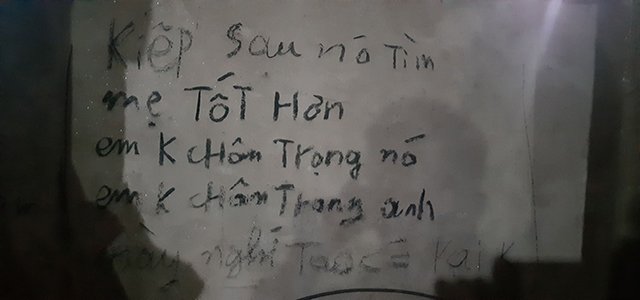 Kiếp sau nó Tìm
mẹ TốT Hơn
em K chân Trọng nó
em K chân Trọng anh
nghĩ Tao